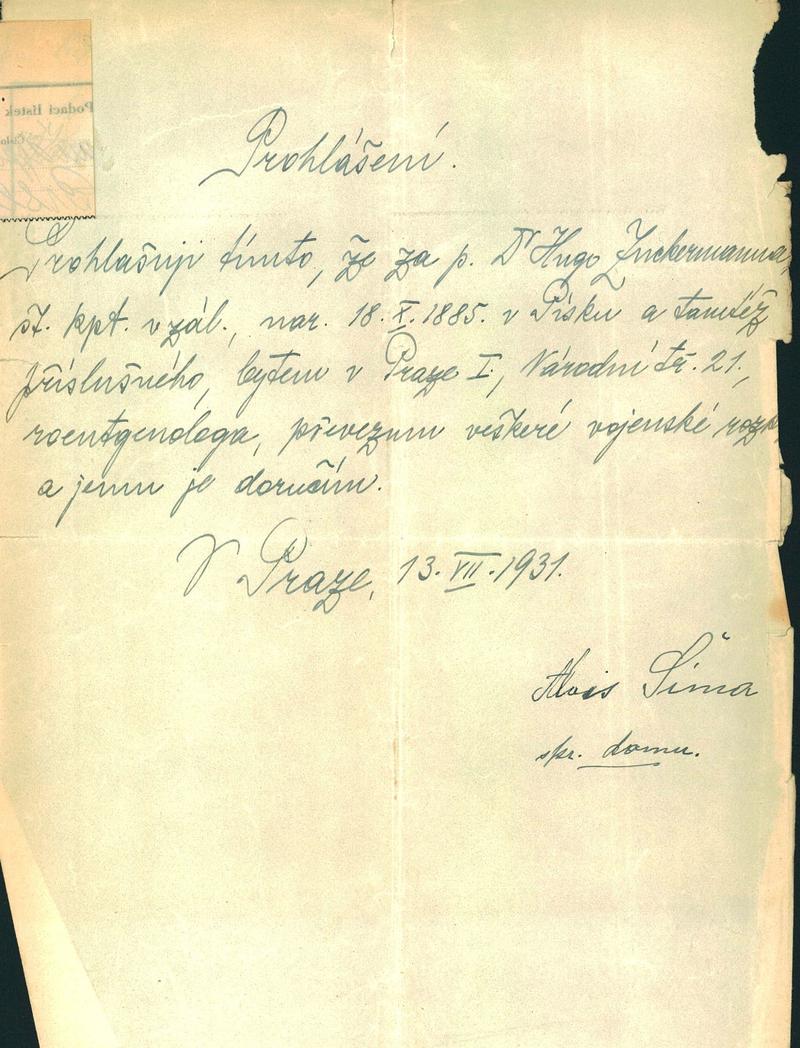 Podací lístek
Číslo
Prohlášení.
Prohlašuji tímto, že za p. Dr Hugo Zuckermanna,
št. kpt. v zál., nar. 18. X. 1885. v Písku a tamtéž
příslušného, bytem v Praze I., Národní tř. 21.,
roentgenologa, převezmu veškeré vojenské
a jemu je doručím.
V Praze, 13. VII. 1931.
Alois Šíma
spr. domu.